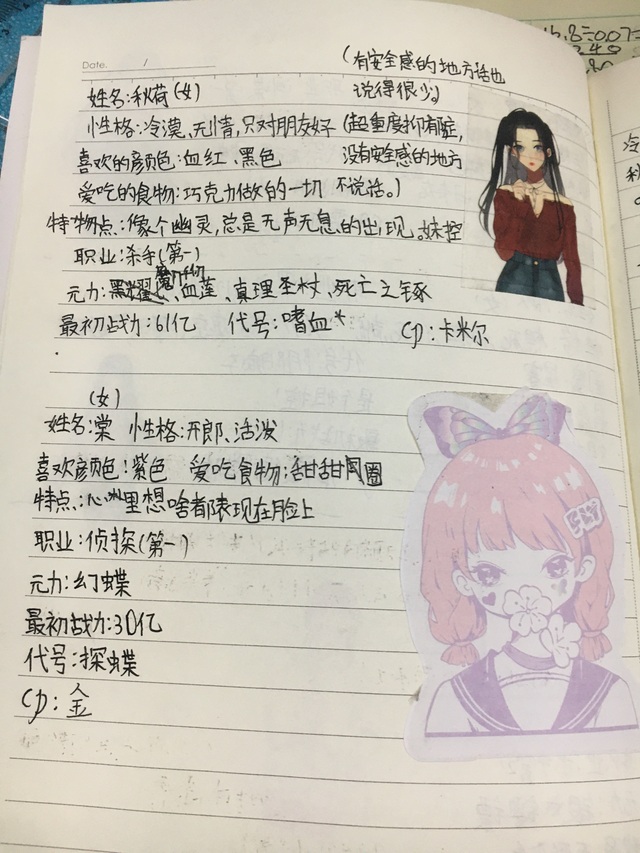 Date.
(有安全感的地方话也
姓名:秋荷(女) 说得很少。
性格:冷漠、无情,只对朋友好(超重度抑郁症,
喜欢的颜色:血红、黑色 没有安全感的地方
爱吃的食物:巧克力做的一切 不说话。)
特点:像个幽灵,总是无声无息的出现。妹控
职业:杀手(第一)
元力:血莲、真理圣杖、死亡之琢
最初战力:61亿 代号:嗜血* CP:卡米尔
(女)
姓名:棠 性格:开郎、活泼
喜欢颜色:紫色 爱吃食物:甜甜圈
特点:心里想啥都表现在脸上
职业:侦探(第一)
元力:幻蝶
最初战力:30亿
代号:探蝶
CP:金
冷
秋